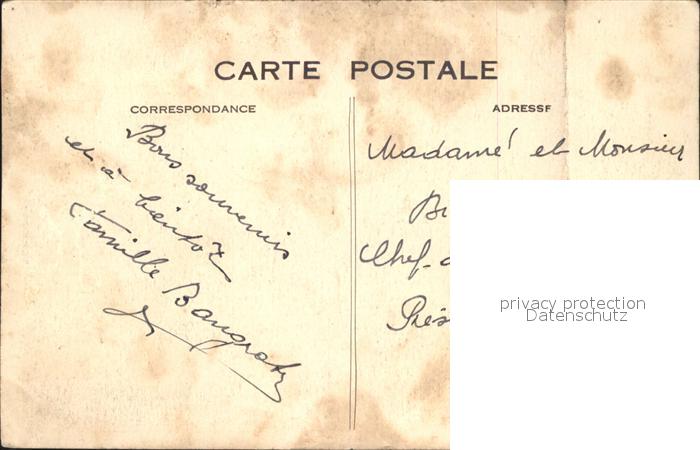 CARTE POSTALE
CORRESPONDANCE
ADRESSE
Bons souvenirs
et à bientôt
Famille Bangratz
Madame et Monsieur
Chef-
privacy protection
Datenschutz